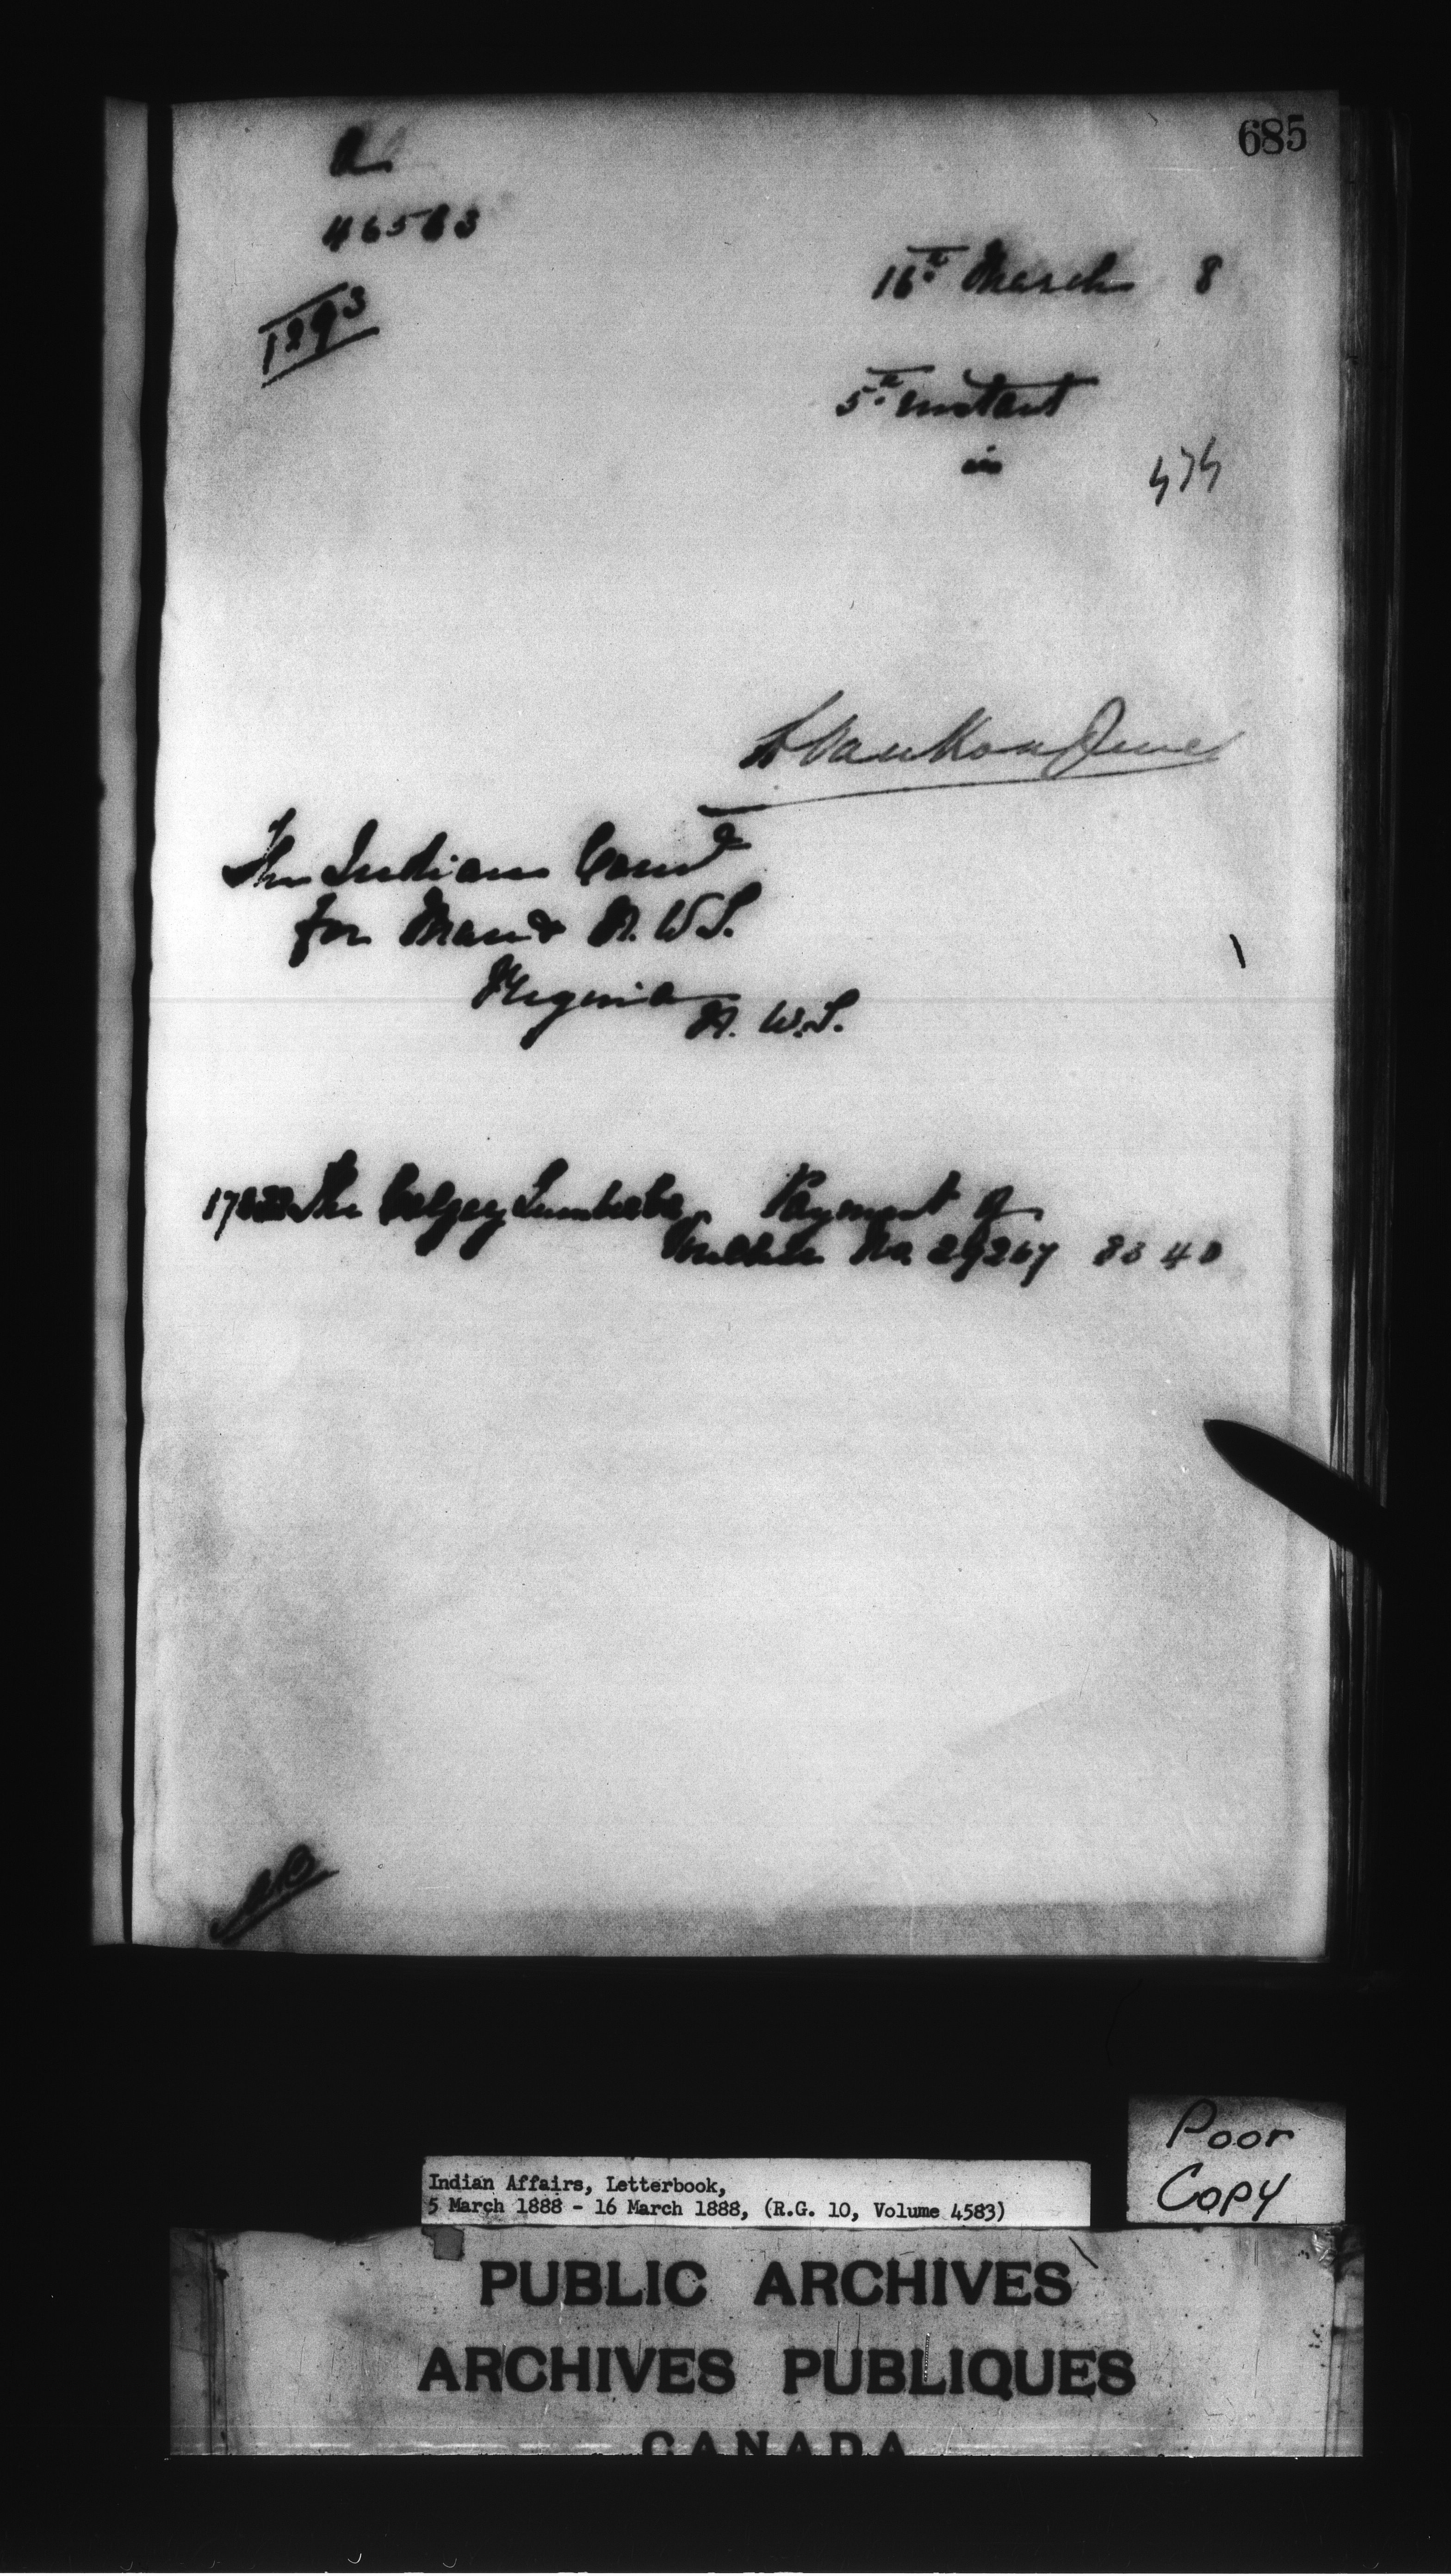 685
a
46563
1293
16th March 8
5th instant
in
474
L Vankoughnet
The Indian Comr
for Man & N.W.T.
Regina
N.W.T.
The Calgary Lumber Co. Payment of
Voucher No 29267 83 40
Poor
Copy
Indian Affairs, Letterbook,
5 March 1888 - 16 March 1888, (R.G. 10, Volume 4583)
PUBLIC ARCHIVES
ARCHIVES PUBLIQUES
CANADA